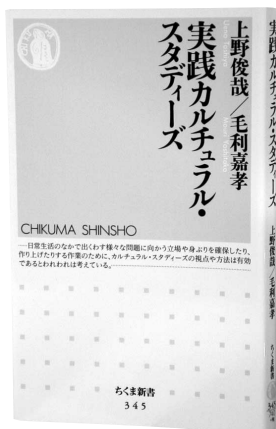 上野俊哉／毛利嘉孝
実践カルチュラル・
スタディーズ
CHIKUMA SHINSHO
―日常生活のなかで出くわす様々な問題に向かう立場や身ぶりを確保したり、
作り上げたりする作業のために、カルチュラル・スタディーズの視点や方法は有効
であるとわれわれは考えている。
ちくま新書
345
実践カルチュラル・スタディーズ
上野俊哉
毛利嘉孝